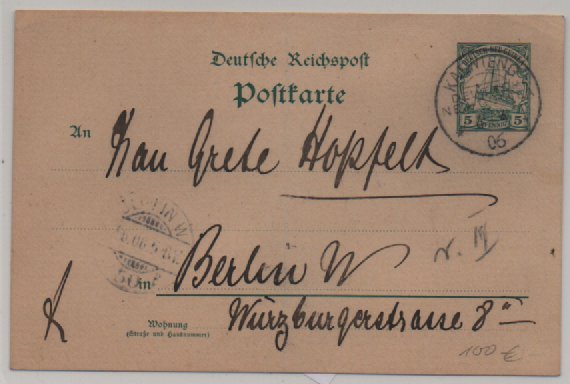 Deutsche Reichspost
Postkarte
5 5
06
An Frau Grete Hopfelt
BERLIN W
50
in Berlin W
Würzburgerstrasse 8
Wohnung
(Straße und Hausnummer)
100 €